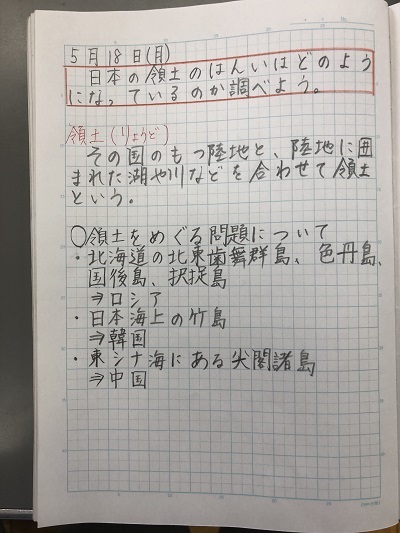 5月18日(月)
日本の領土のはんいはどのよう
になっているのか調べよう。
領土(りょうど)
その国のもつ陸地と、陸地に囲
まれた湖や川などを合わせて領土
という。
○領土をめぐる問題について
・北海道の北東歯舞群島、色丹島、
国後島、択捉島
⇒ロシア
・日本海上の竹島
⇒韓国
・東シナ海にある尖閣諸島
⇒中国